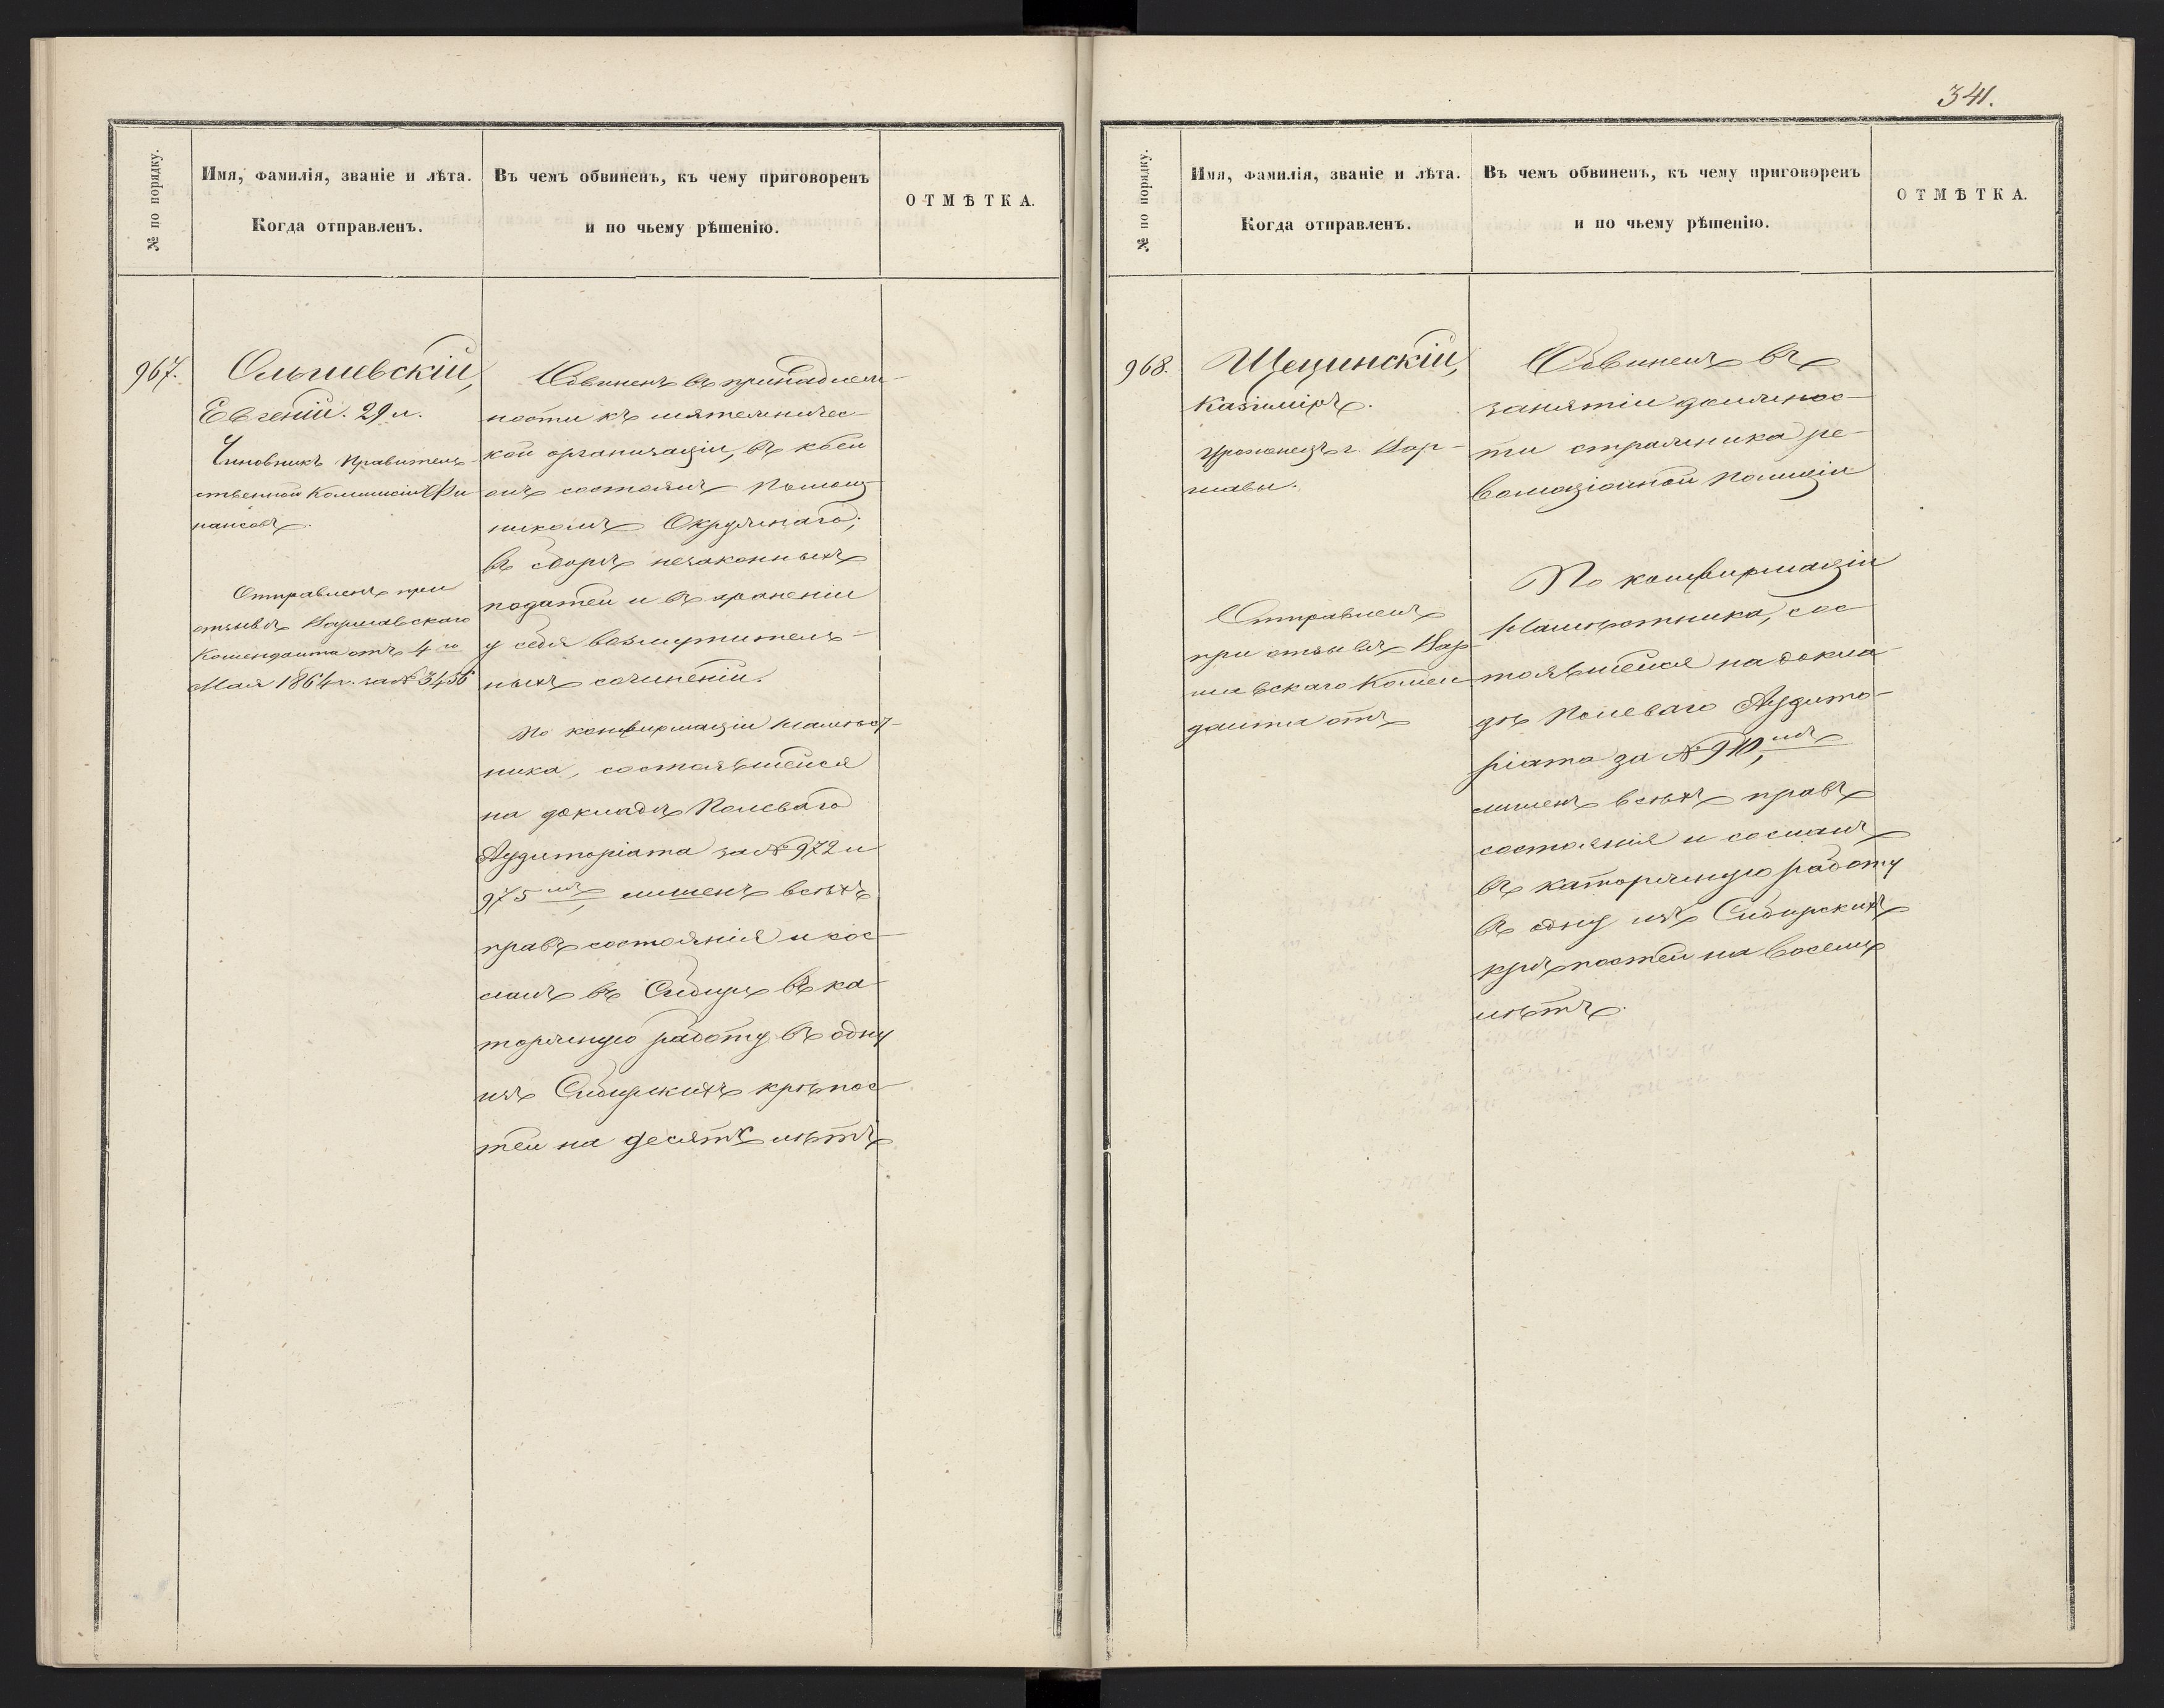 № по порядку.
Имя, фамилія, званіе и лѣта.
Когда отправленъ.
Въ чемъ обвиненъ, къ чему приговоренъ
и по чьему рѣшенію.
ОТМѢТКА.
967.
Ольшевскій,
Евгеній. 29 л.
Чиновникъ Правитель-
ственной Коммисіи Фи
нансовъ.
Отправленъ при
отзывѣ Варшавскаго
Коменданта отъ 4го
Мая 1864 г. за № 3456
Обвиненъ въ принадлеж-
ности къ мятежничес-
кой организаціи, въ коей
онъ состоялъ Помощ-
никомъ Окружнаго;
въ сборѣ незаконныхъ
податей и въ храненіи
у себя возмутитель-
ныхъ сочиненій.
По конфирмаціи Намѣст-
ника, состоявшейся
на докладѣ Полеваго
Аудиторіата за № 972 и
975мъ, лишенъ всѣхъ
правъ состоянія и сос-
ланъ въ Сибирь въ ка
торжную работу въ одну
изъ Сибирскихъ крѣпос
тей на десять лѣтъ
341.
№ по порядку.
Имя, фамилія, званіе и лѣта.
Когда отправленъ.
Въ чемъ обвиненъ, къ чему приговоренъ
и по чьему рѣшенію.
ОТМѢТКА.
968.
Щецинскій,
Казиміръ.
Уроженецъ г. Вар-
шавы.
Отправленъ
при отзывѣ Вар-
шавскаго Комен-
данта отъ
Обвиненъ въ
занятіи должнос-
ти стражника ре-
волюціонной полиціи
По конфирмаціи
Намѣстника, сос
тоявшейся на докла-
дѣ Полеваго Аудито-
ріата за № 910мъ,
лишенъ всѣхъ правъ
состоянія и сосланъ
въ каторжную работу
въ одну изъ Сибирскихъ
крѣпостей на восемь
лѣтъ.